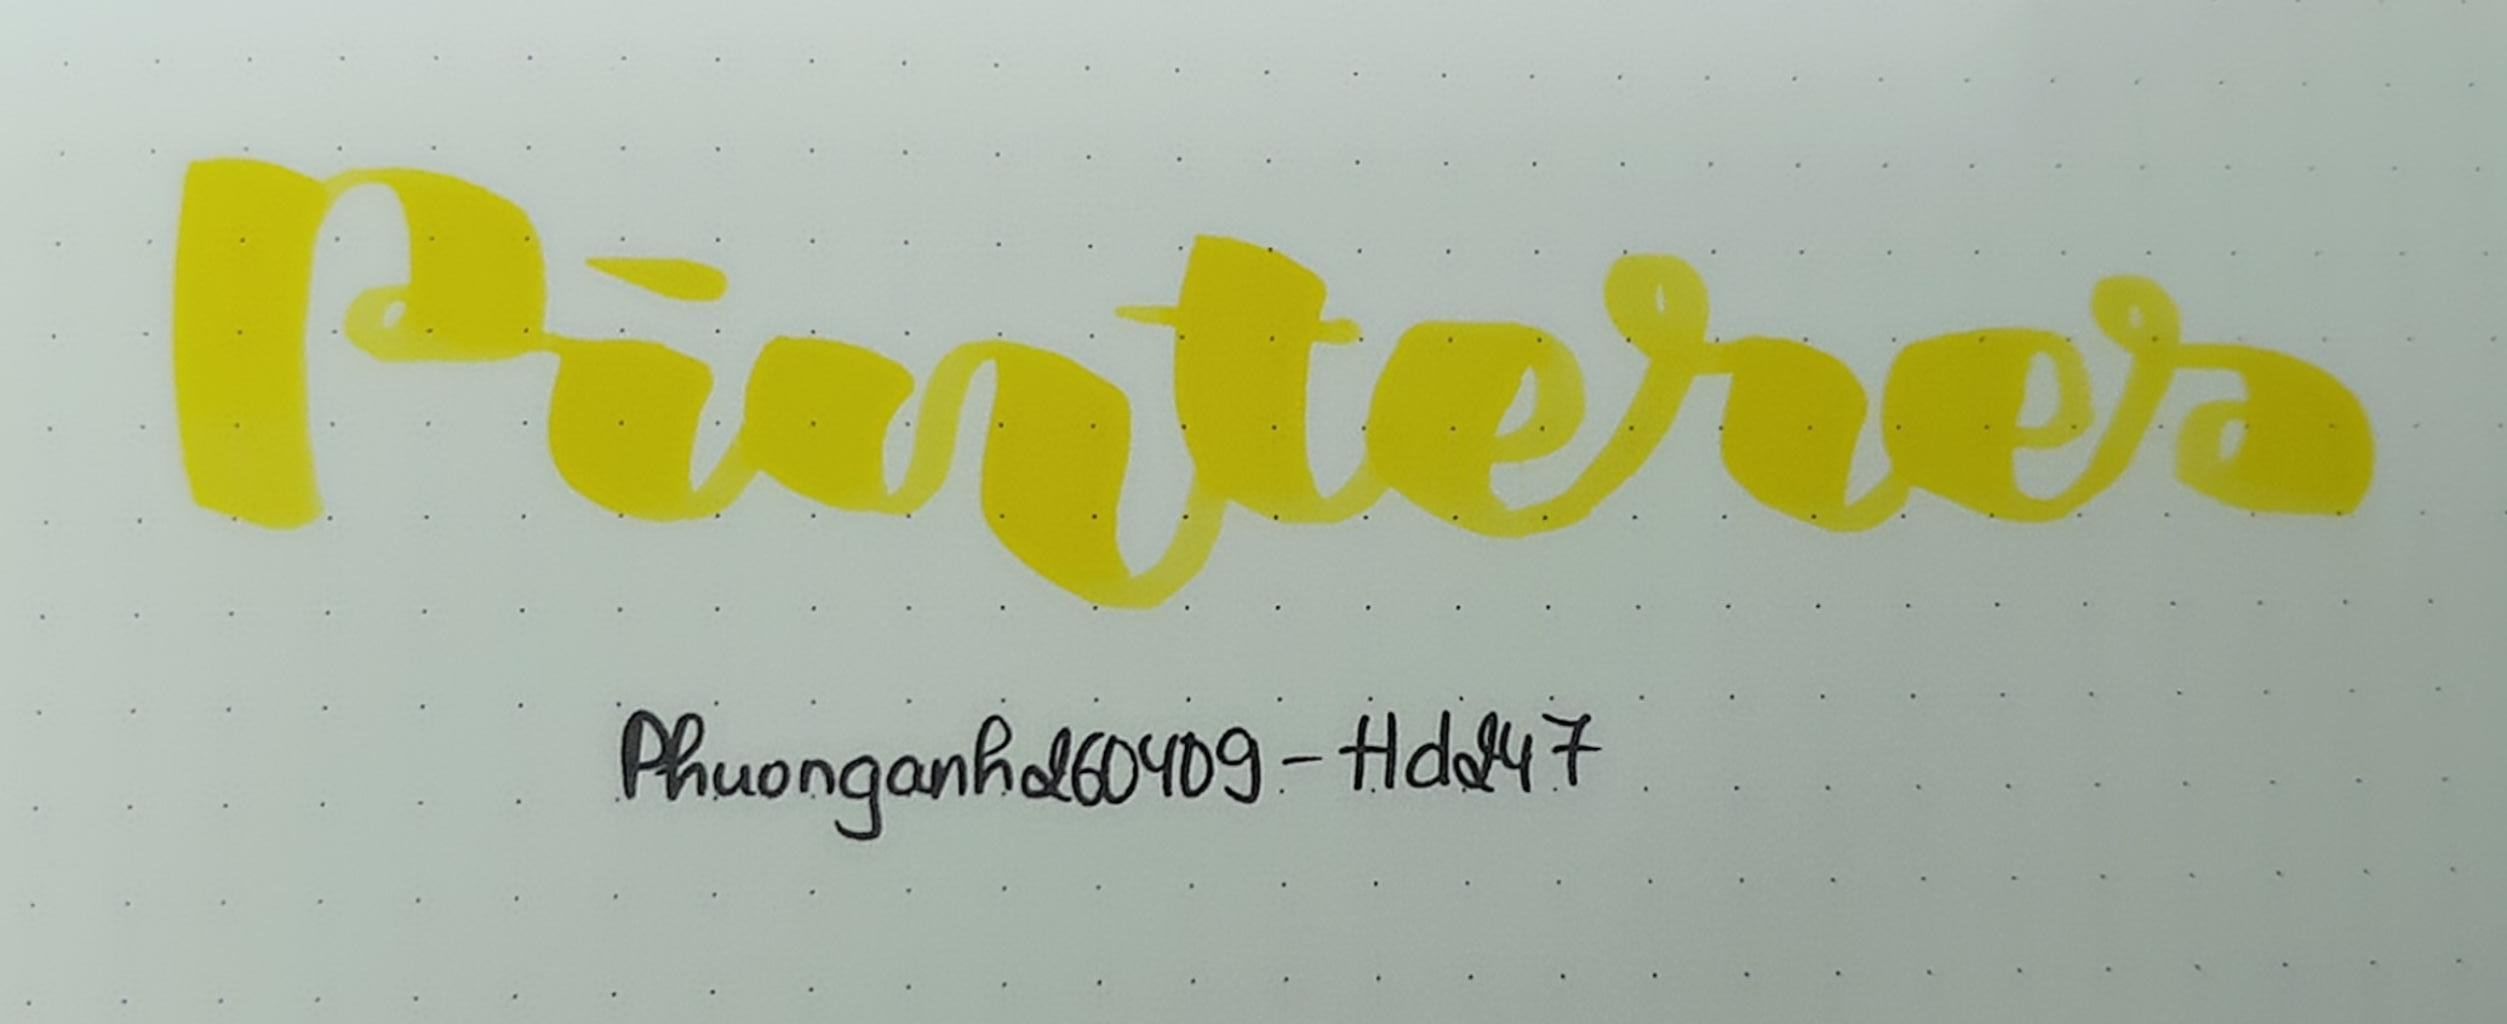 Pinteres
Phuonganh260409-Hd247